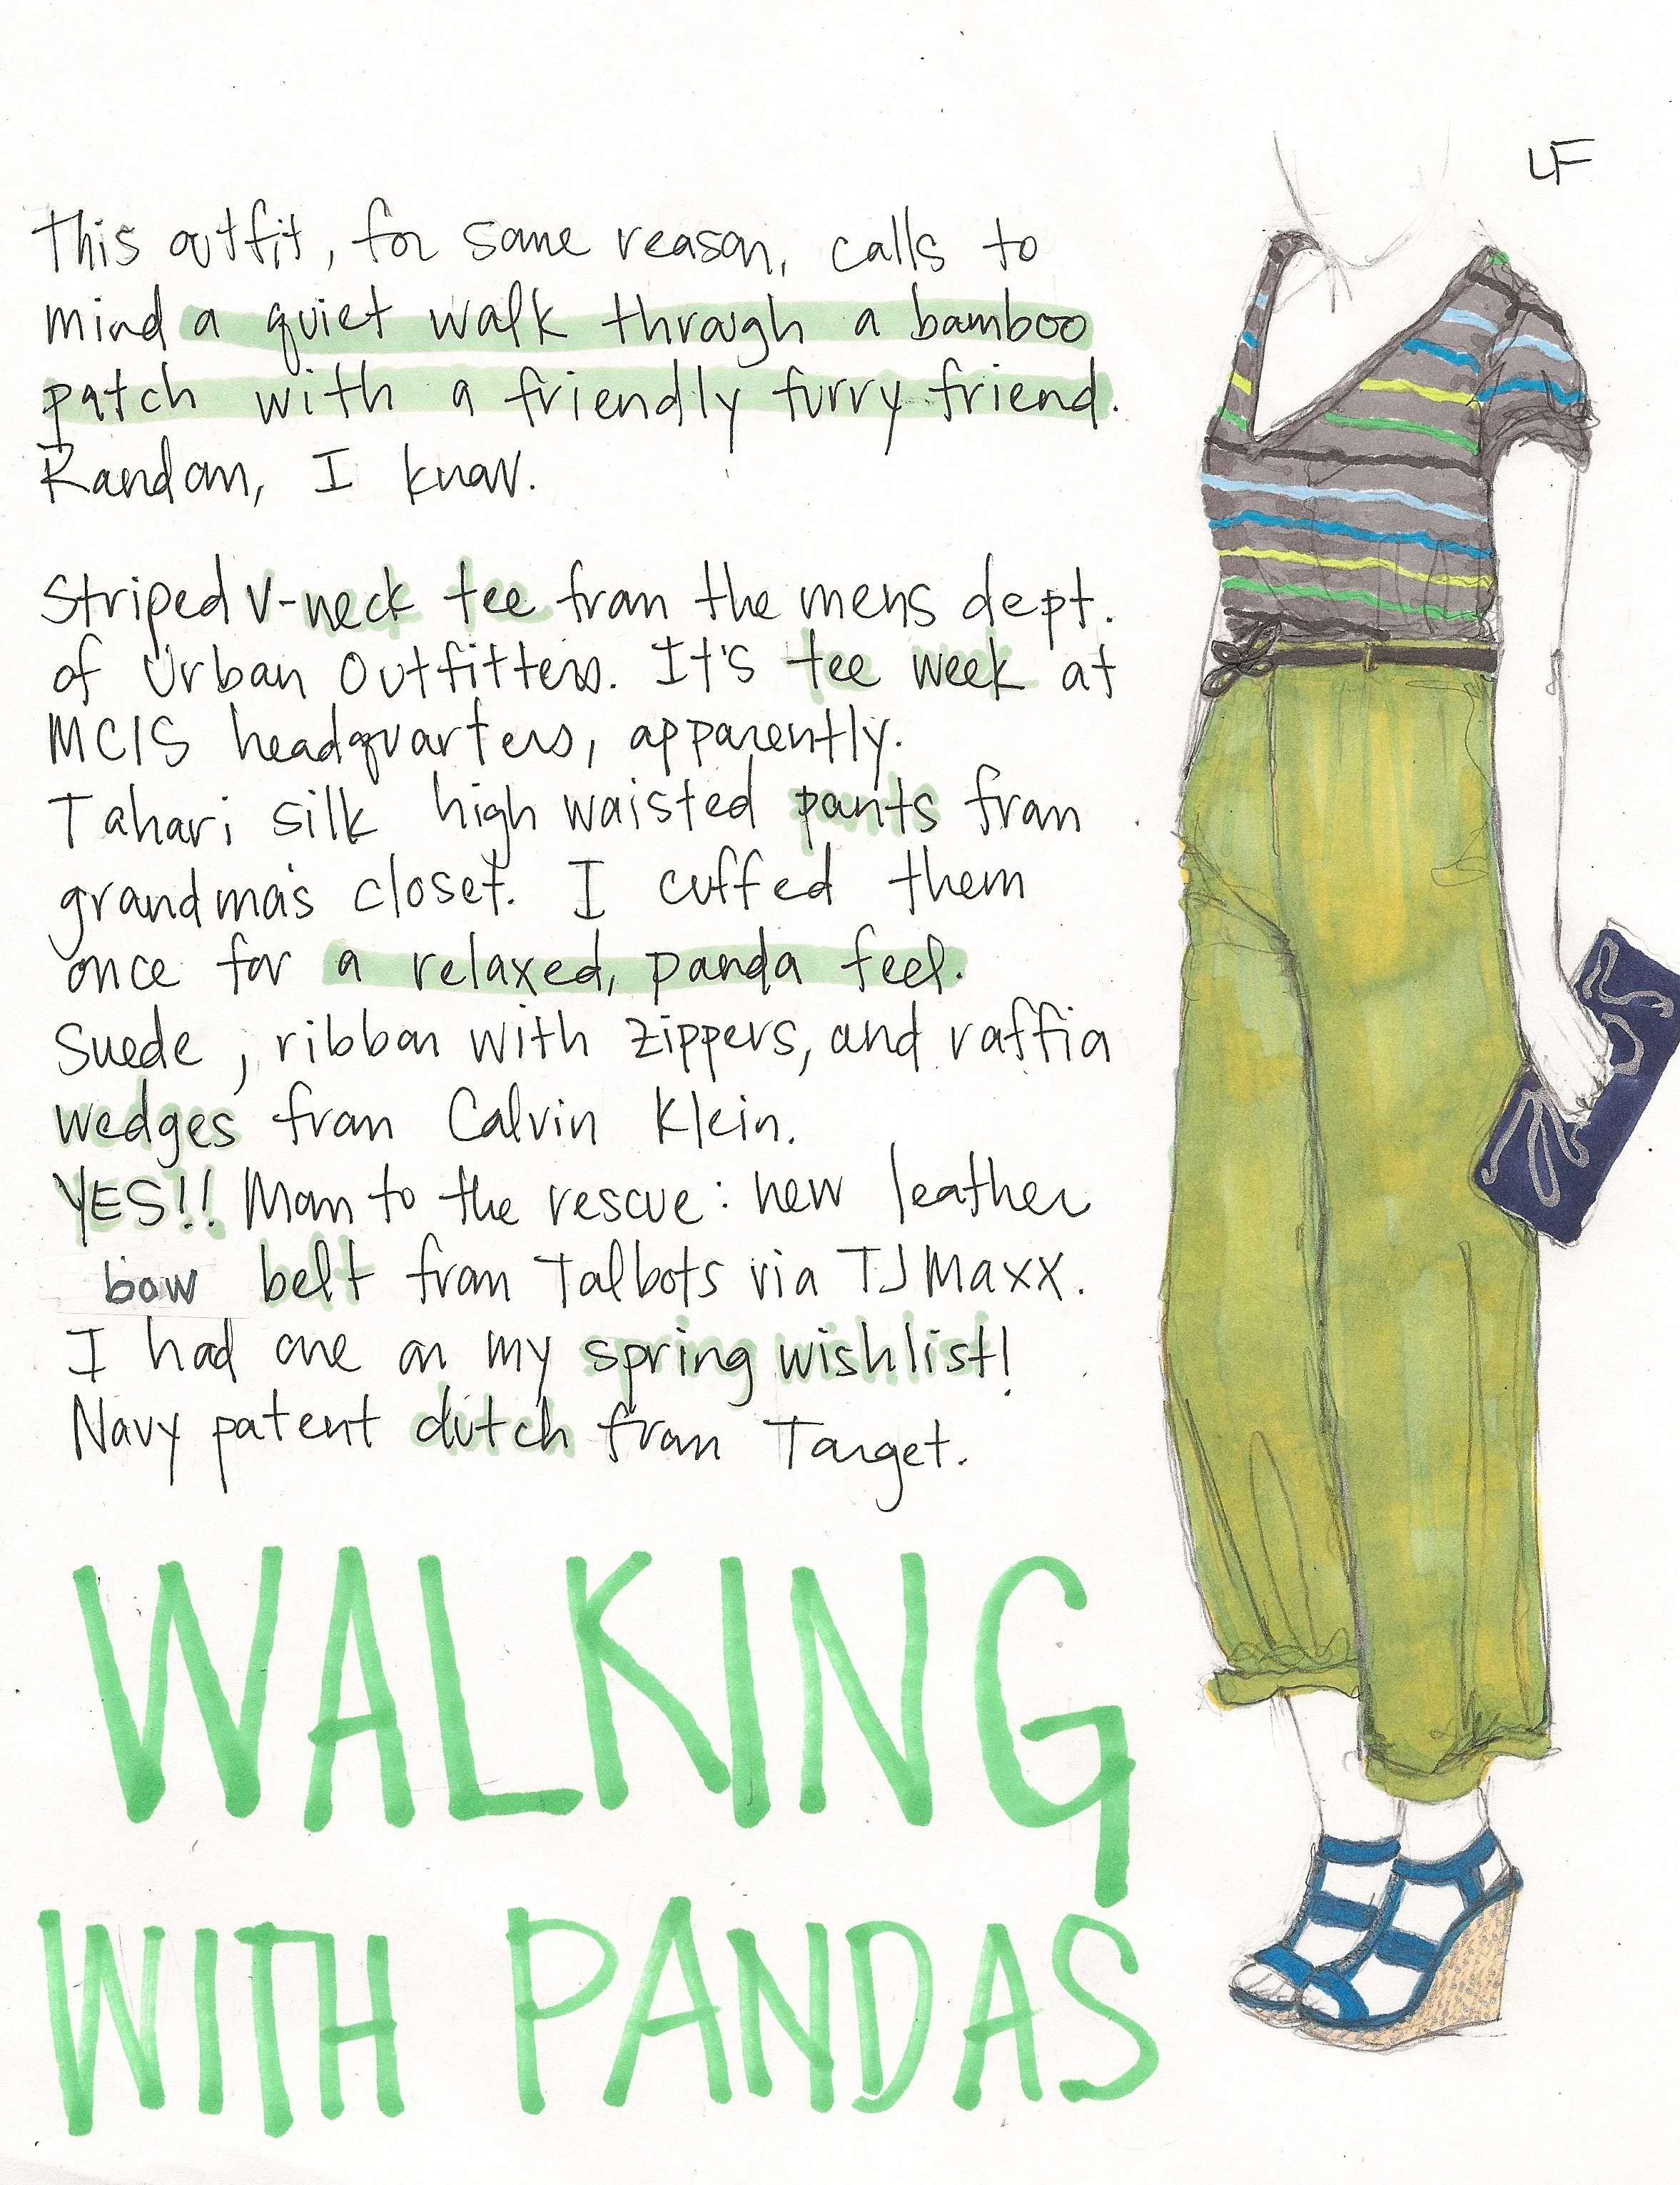 LF
This outfit, for some reason, calls to
mind a quiet walk through a bamboo
patch with a friendly furry friend.
Random, I know.
Striped V-neck tee from the mens dept.
of Urban Outfitters. It's tee week at
MCIS headquarters, apparently.
Tahari silk high waisted pants from
grandma's closet. I cuffed them
once for a relaxed, panda feel.
Suede, ribbon with zippers, and raffia
wedges from Calvin Klein.
YES!! Mom to the rescue: new leather
bow belt from Talbots via TJ Maxx.
I had one on my spring wishlist!
Navy patent clutch from Target.
WALKING
WITH PANDAS